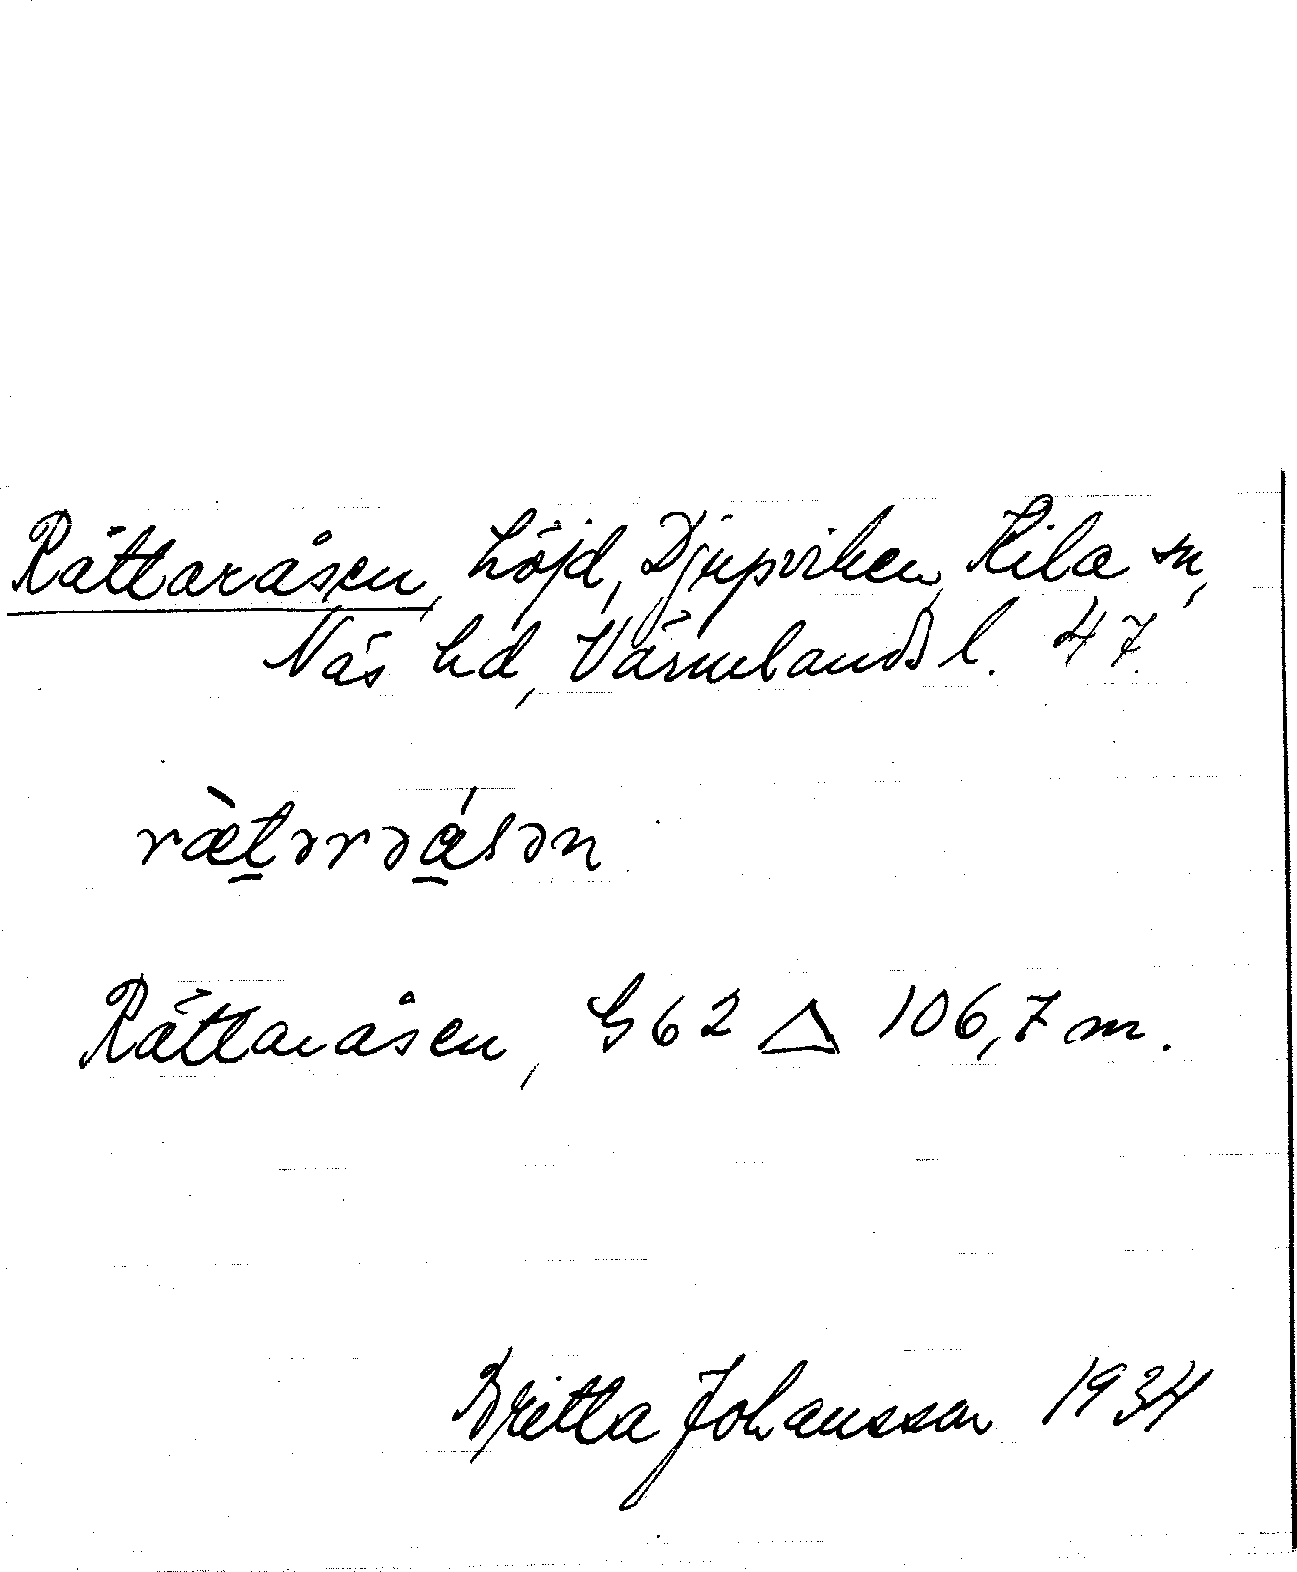 Rättaråsen, höjd, Djupviken, Kila sn,
Näs hd, Värmlands l. 47.
ræ̀tərəåsən
Rättaråsen, G62 △ 106,7 m.
Britta Johansson 1934